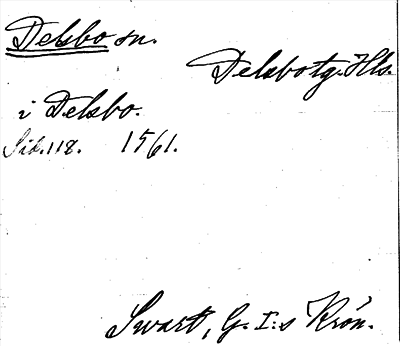 Delsbo sn.
Delsbotg. Hls.
i Delsbo.
Sid. 118. 1561.
Swart, G. I:s Krön.